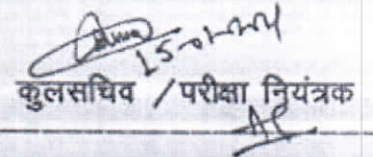 15-01-2024
कुलसचिव / परीक्षा नियंत्रक